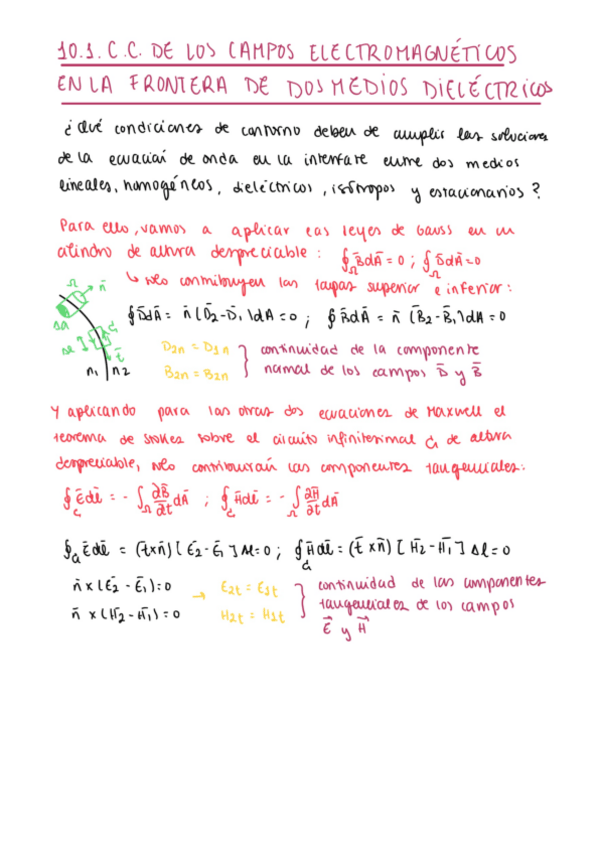 10.1. C.C. DE LOS CAMPOS ELECTROMAGNÉTICOS
EN LA FRONTERA DE DOS MEDIOS DIELÉCTRICOS
¿Qué condiciones de contorno deben de cumplir las soluciones
de la ecuación de onda en la interfase entre dos medios
lineales, homogéneos, dieléctricos, isótropos y estacionarios?
Para ello, vamos a aplicar las leyes de Gauss en un
cilindro de altura despreciable: ∮_Ω B̄dĀ = 0 ; ∮_Ω D̄dĀ = 0
↳ solo contribuyen las tapas superior e inferior:
∮D̄dĀ = n̄ (D̄2 - D̄1)dA = 0 ; ∮B̄dĀ = n̄ (B̄2 - B̄1)dA = 0
Ω n̄
ΔA
Δl C1
t̄
n1 n2
D2n = D1n } continuidad de la componente
B2n = B2n normal de los campos D̄ y B̄
Y aplicando para las otras dos ecuaciones de Maxwell el
teorema de Stokes sobre el circuito infinitesimal C1 de altura
despreciable, solo contribuirán las componentes tangenciales:
∮_C Ēdl̄ = - ∫_Ω ∂B̄/∂t dĀ ; ∮_C H̄dl̄ = - ∫_Ω ∂H̄/∂t dĀ
∮_C1 Ēdl̄ = (t̄×n̄) [Ē2 - Ē1] Δl = 0 ; ∮_C1 H̄dl̄ = (t̄ × n̄) [H̄2 - H̄1] Δl = 0
n̄ × (Ē2 - Ē1) = 0 → E2t = E1t } continuidad de las componentes
n̄ × (H̄2 - H̄1) = 0 H2t = H1t tangenciales de los campos
E⃗ y H⃗